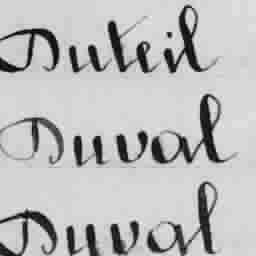 Duteil
Duval
Duval